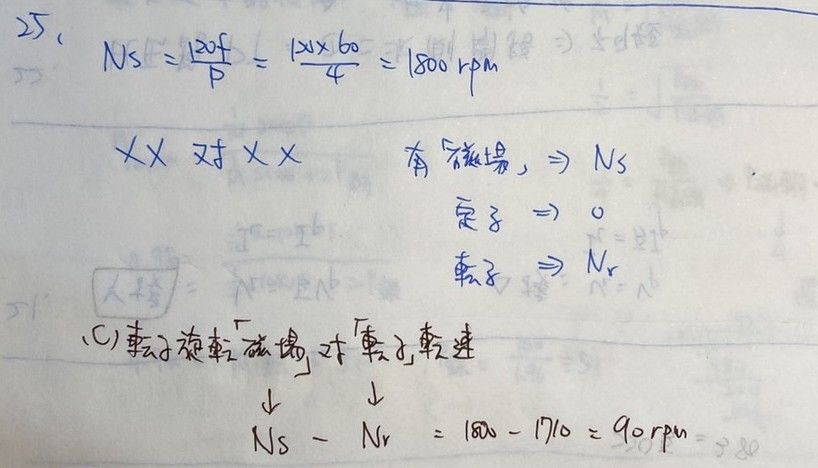 25.
Ns = 120f/P = 120×60/4 = 1800 rpm
XX 対 XX 有「磁場」⇒ Ns
定子 ⇒ 0
転子 ⇒ Nr
(C) 転子旋転「磁場」対「転子」転速
↓ ↓
Ns - Nr = 1800 - 1710 = 90 rpm